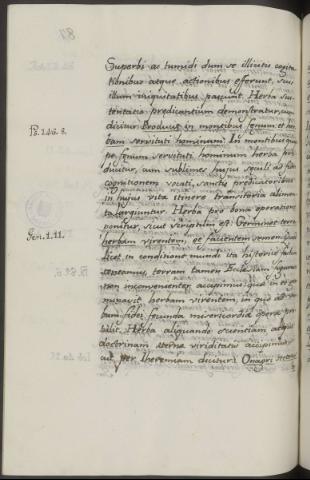 Superbi ac tumidi dum se illicitis cogita
tionibus atque actionibus efferunt, suis
illum iniquitatibus pascunt. Herba sus
tentatio prædicantium demonstratur, cum
dicitur: Producit in montibus fenum et her
bam servituti hominum. In montibus quip
Ps. 146. 8.
pe fenum servituti hominum herba pro
ducitur, cum sublimes hujus seculi ad fidei
cognitionem vocati, sanctis prædicatoribus
in hujus vitæ itinere transitoria alimen
ta largiuntur. Herba pro bona operatione
ponitur, sicut scriptum est: Germinet terra
Gen. 1. 11.
herbam virentem, et facientem semen
licet in conditione mundi ita historice
sentiamus, terram tamen Ecclesiam figuram
non inconvenienter accipimus, quæ in eo
herbam virentem, in quo
bum fidei fecunda misericordiæ opera pro
tulit. Herba aliquando scientiam atque
doctrinam æternæ viriditatis accipimus
ut per Iheremiam dicitur: Onagri